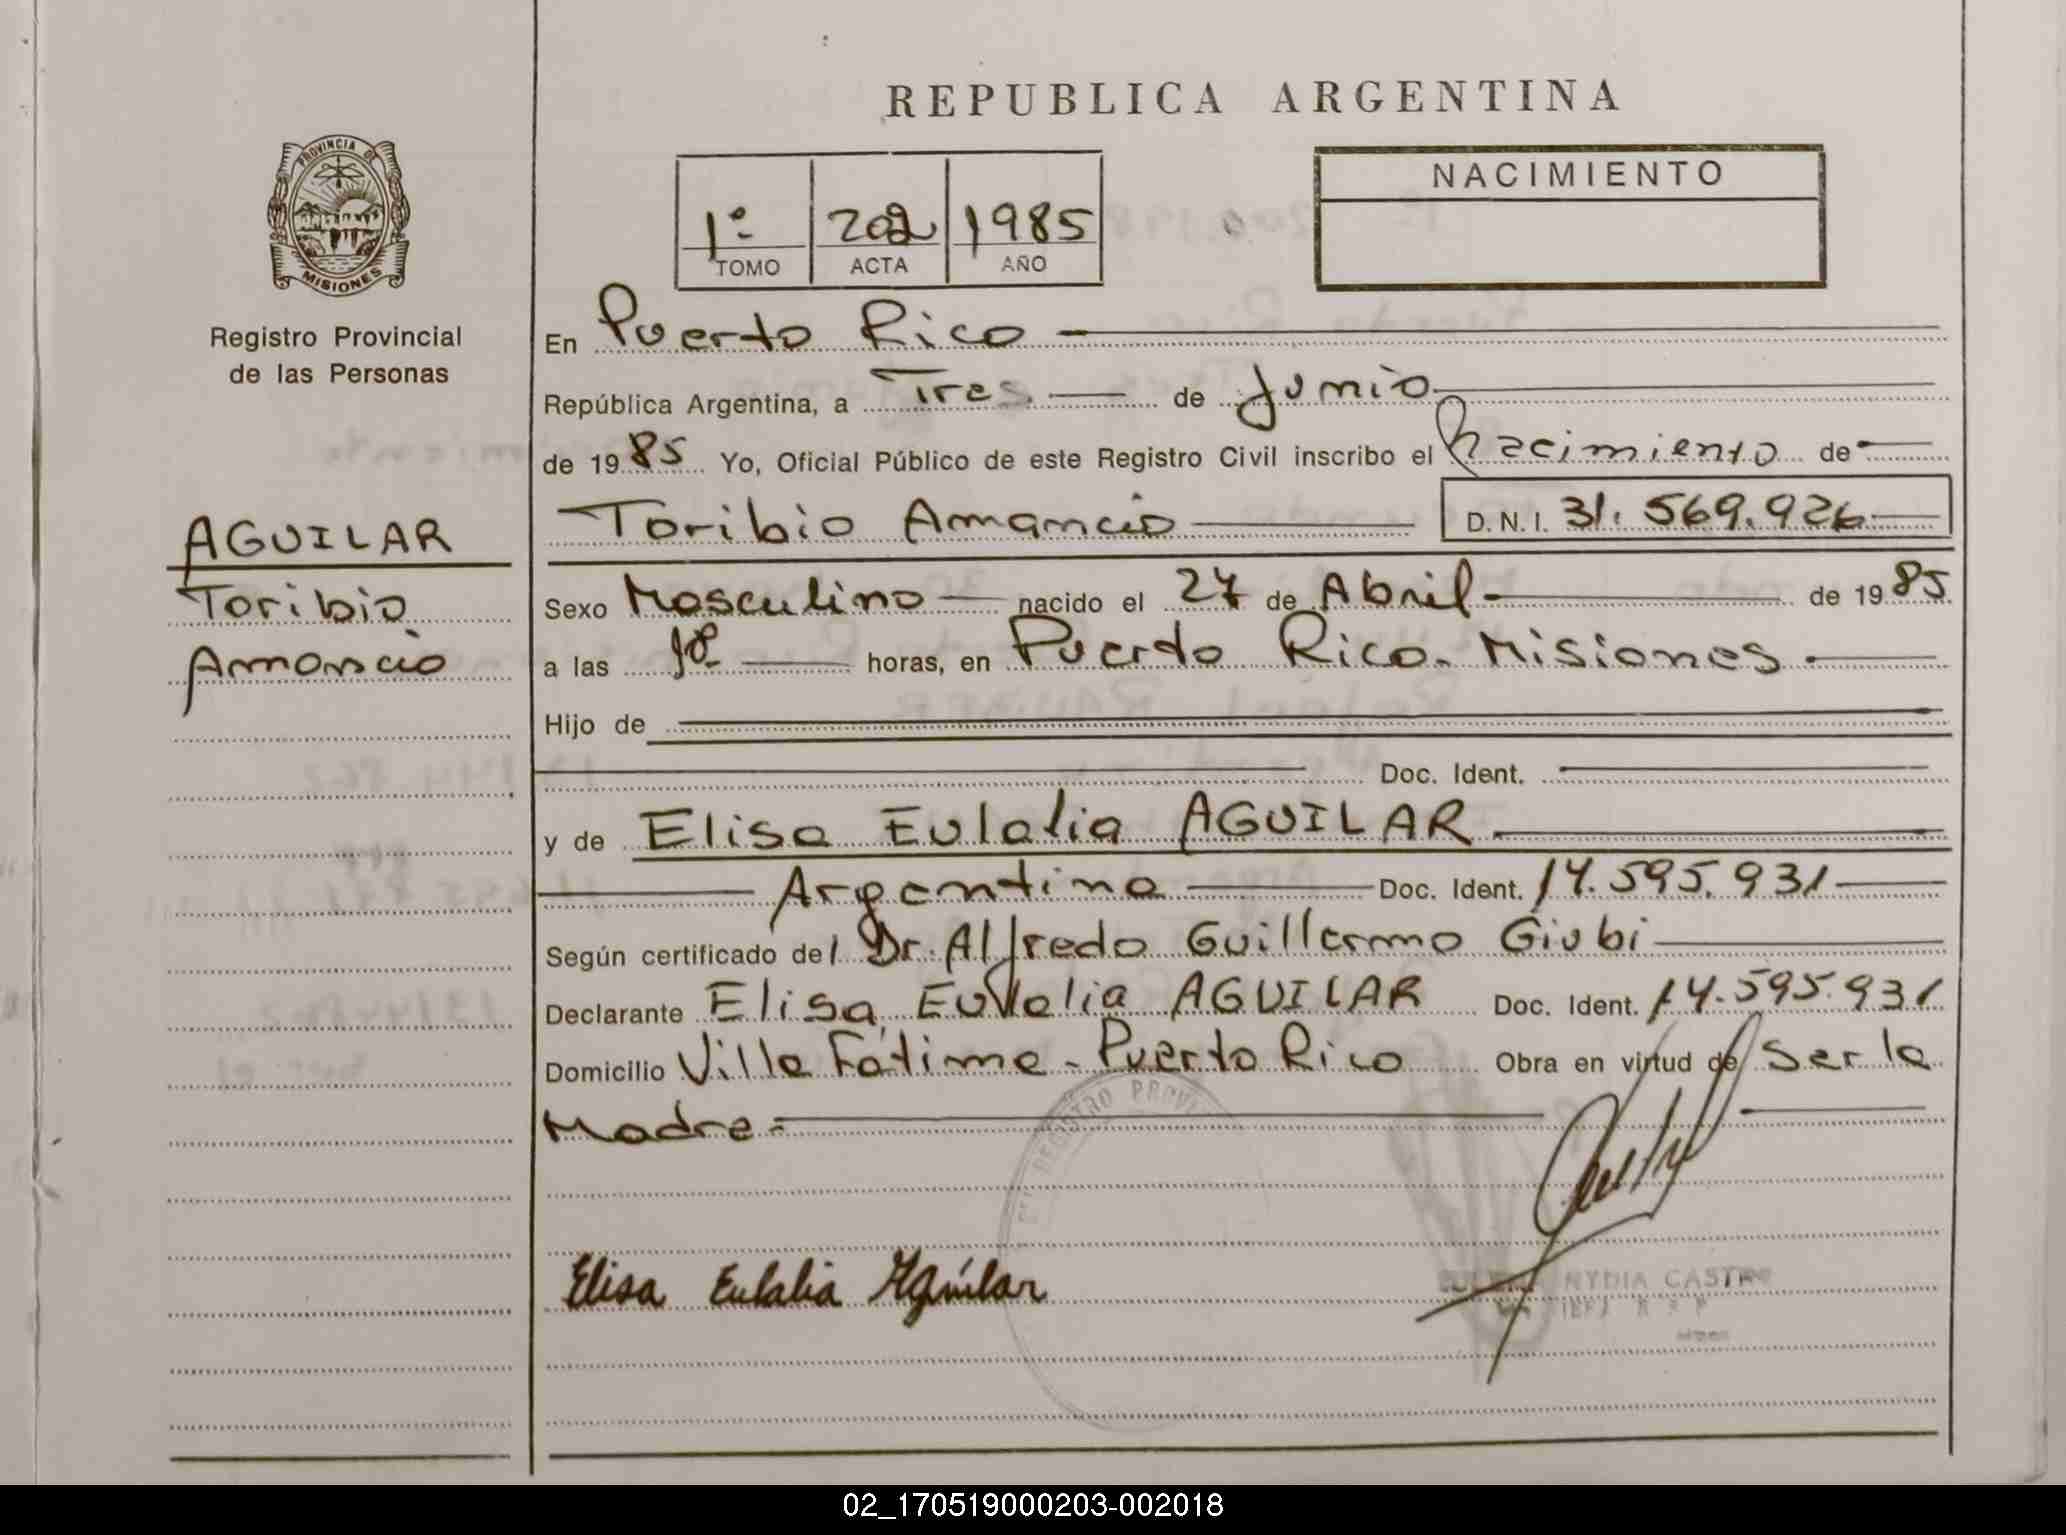 REPUBLICA ARGENTINA
PROVINCIA DE
MISIONES
Registro Provincial
de las Personas
1º 202 1985
TOMO ACTA AÑO
NACIMIENTO
En Puerto Rico
República Argentina, a Tres de Junio
de 1985 Yo, Oficial Público de este Registro Civil inscribo el Nacimiento de
Toribio Amancio D.N.I. 31.569.926
AGUILAR
Toribio
Amancio
Sexo Masculino nacido el 27 de Abril de 1985
a las horas, en Puerto Rico. Misiones
Hijo de
Doc. Ident.
y de Elisa Eulalia AGUILAR
Argentina Doc. Ident. 14.595.931
Según certificado del Dr. Alfredo Guillermo Giubi
Declarante Elisa Eulalia AGUILAR Doc. Ident. 14.595.931
Domicilio Villa Fátima - Puerto Rico Obra en virtud de ser la
Madre.
REGISTRO PROVI
Elisa Eulalia Aguilar
NYDIA CASTRO
02_170519000203-002018